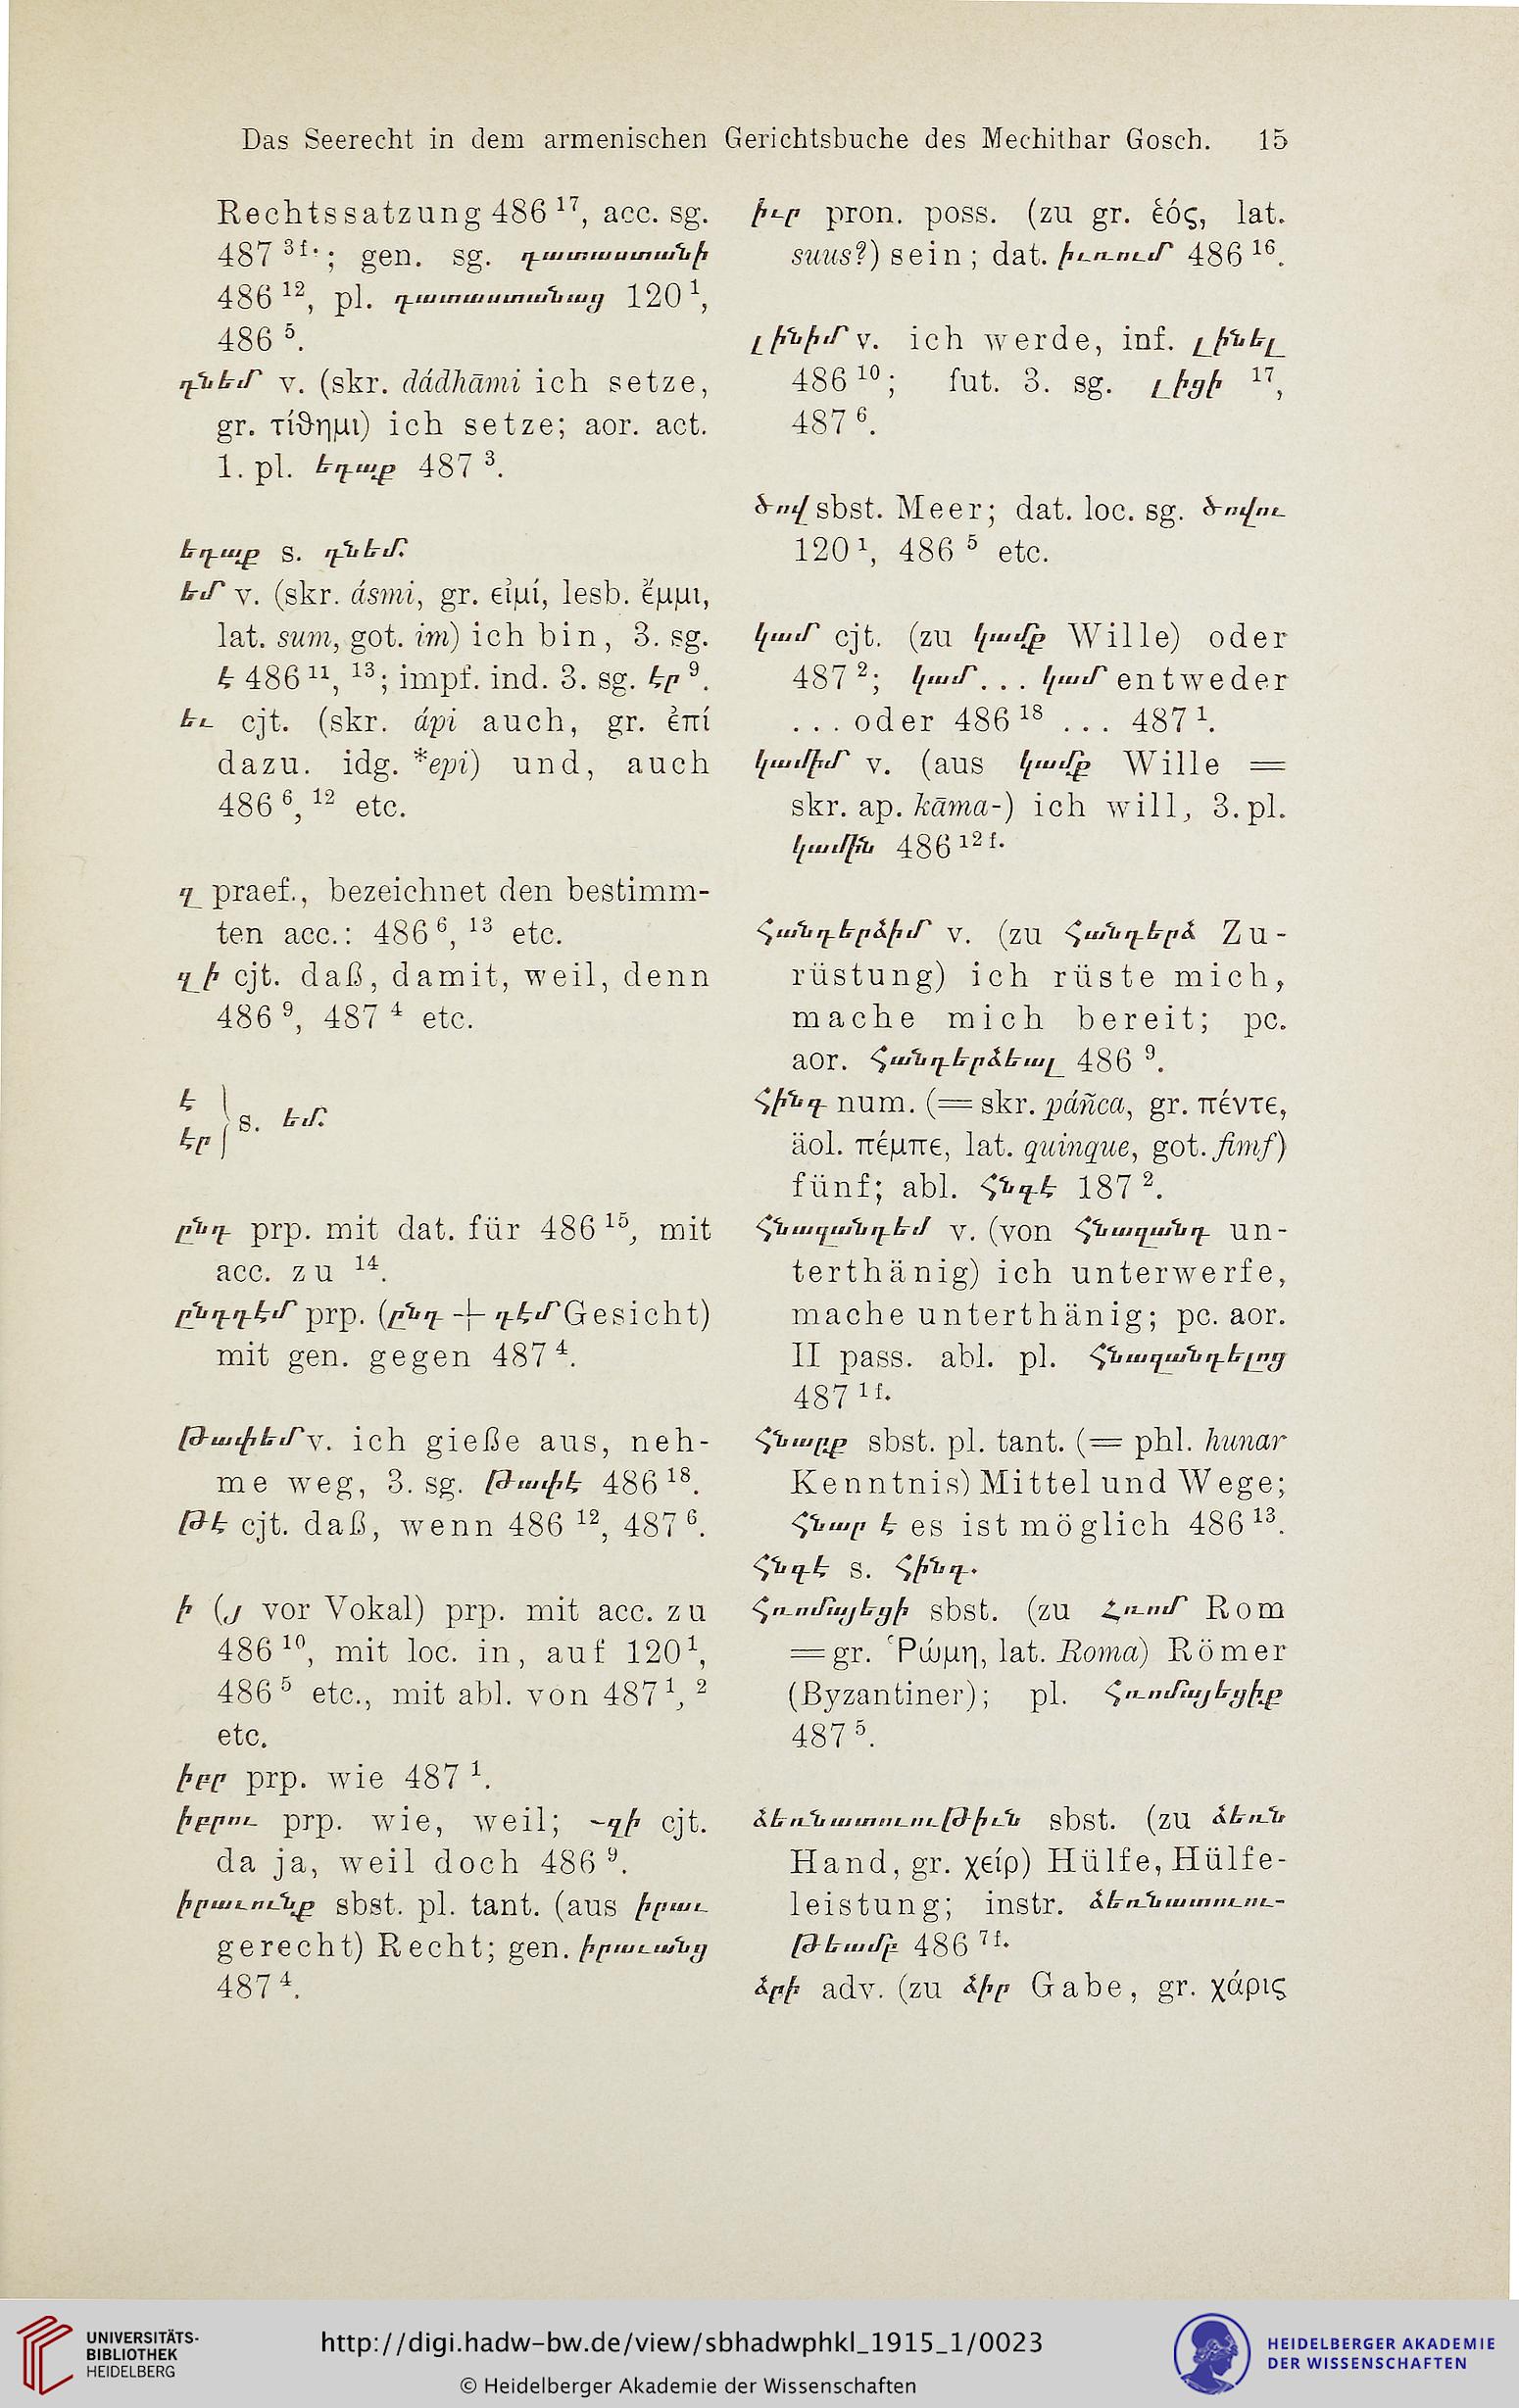 Das Seerecht in dem armenischen Gerichtsbuche des Mechithar Gosch. 15
Rechtssatzung 486 ¹⁷, acc. sg.
487 ³ᶠ·; gen. sg. դատաստանի
486 ¹², pl. դատաստանաց 120 ¹,
486 ⁵.
դնեմ v. (skr. dádhāmi ich setze,
gr. τίθημι) ich setze; aor. act.
1. pl. եդաք 487 ³.
եդաք s. դնեմ.
եմ v. (skr. ásmi, gr. εἰμί, lesb. ἔμμι,
lat. sum, got. im) ich bin, 3. sg.
է 486 ¹¹, ¹³; impf. ind. 3. sg. էր ⁹.
եւ cjt. (skr. ápi auch, gr. ἐπί
dazu. idg. *epi) und, auch
486 ⁶, ¹² etc.
զ praef., bezeichnet den bestimm-
ten acc.: 486 ⁶, ¹³ etc.
զի cjt. daß, damit, weil, denn
486 ⁹, 487 ⁴ etc.
է
էր } s. եմ.
ընդ prp. mit dat. für 486 ¹⁵, mit
acc. zu ¹⁴.
ընդդէմ prp. (ընդ + դէմ Gesicht)
mit gen. gegen 487 ⁴.
թափեմ v. ich gieße aus, neh-
me weg, 3. sg. թափէ 486 ¹⁸.
թէ cjt. daß, wenn 486 ¹², 487 ⁶.
ի (յ vor Vokal) prp. mit acc. zu
486 ¹⁰, mit loc. in, auf 120 ¹,
486 ⁵ etc., mit abl. von 487 ¹, ²
etc.
իբր prp. wie 487 ¹.
իբրու prp. wie, weil; ~զի cjt.
da ja, weil doch 486 ⁹.
իրաւունք sbst. pl. tant. (aus իրաւ
gerecht) Recht; gen. իրաւանց
487 ⁴.
իւր pron. poss. (zu gr. ἑός, lat.
suus?) sein; dat. իւռում 486 ¹⁶.
լինիմ v. ich werde, inf. լինել
486 ¹⁰; fut. 3. sg. լիցի ¹⁷,
487 ⁶.
ծով sbst. Meer; dat. loc. sg. ծովու
120 ¹, 486 ⁵ etc.
կամ cjt. (zu կամք Wille) oder
487 ²; կամ... կամ entweder
... oder 486 ¹⁸ ... 487 ¹.
կամիմ v. (aus կամք Wille =
skr. ap. kāma-) ich will, 3. pl.
կամին 486 ¹² ᶠ·
հանդերձիմ v. (zu հանդերձ Zu-
rüstung) ich rüste mich,
mache mich bereit; pc.
aor. հանդերձեալ 486 ⁹.
հինգ num. (= skr. páñca, gr. πέντε,
äol. πέμπε, lat. quinque, got. fimf)
fünf; abl. հնգէ 187 ².
հնազանդեմ v. (von հնազանդ un-
terthänig) ich unterwerfe,
mache unterthänig; pc. aor.
II pass. abl. pl. հնազանդելոց
487 ¹ᶠ·
հնարք sbst. pl. tant. (= phl. hunar
Kenntnis) Mittel und Wege;
հնար է es ist möglich 486 ¹³.
հնգէ s. հինգ.
հռոմայեցի sbst. (zu Հռոմ Rom
= gr. Ῥώμη, lat. Roma) Römer
(Byzantiner); pl. հռոմայեցիք
487 ⁵.
ձեռնատուութիւն sbst. (zu ձեռն
Hand, gr. χείρ) Hülfe, Hülfe-
leistung; instr. ձեռնատուու-
թեամբ 486 ⁷ᶠ·
ձրի adv. (zu ձիր Gabe, gr. χάρις
UNIVERSITÄTS-
BIBLIOTHEK
HEIDELBERG
http://digi.hadw-bw.de/view/sbhadwphkl_1915_1/0023
© Heidelberger Akademie der Wissenschaften
HEIDELBERGER AKADEMIE
DER WISSENSCHAFTEN